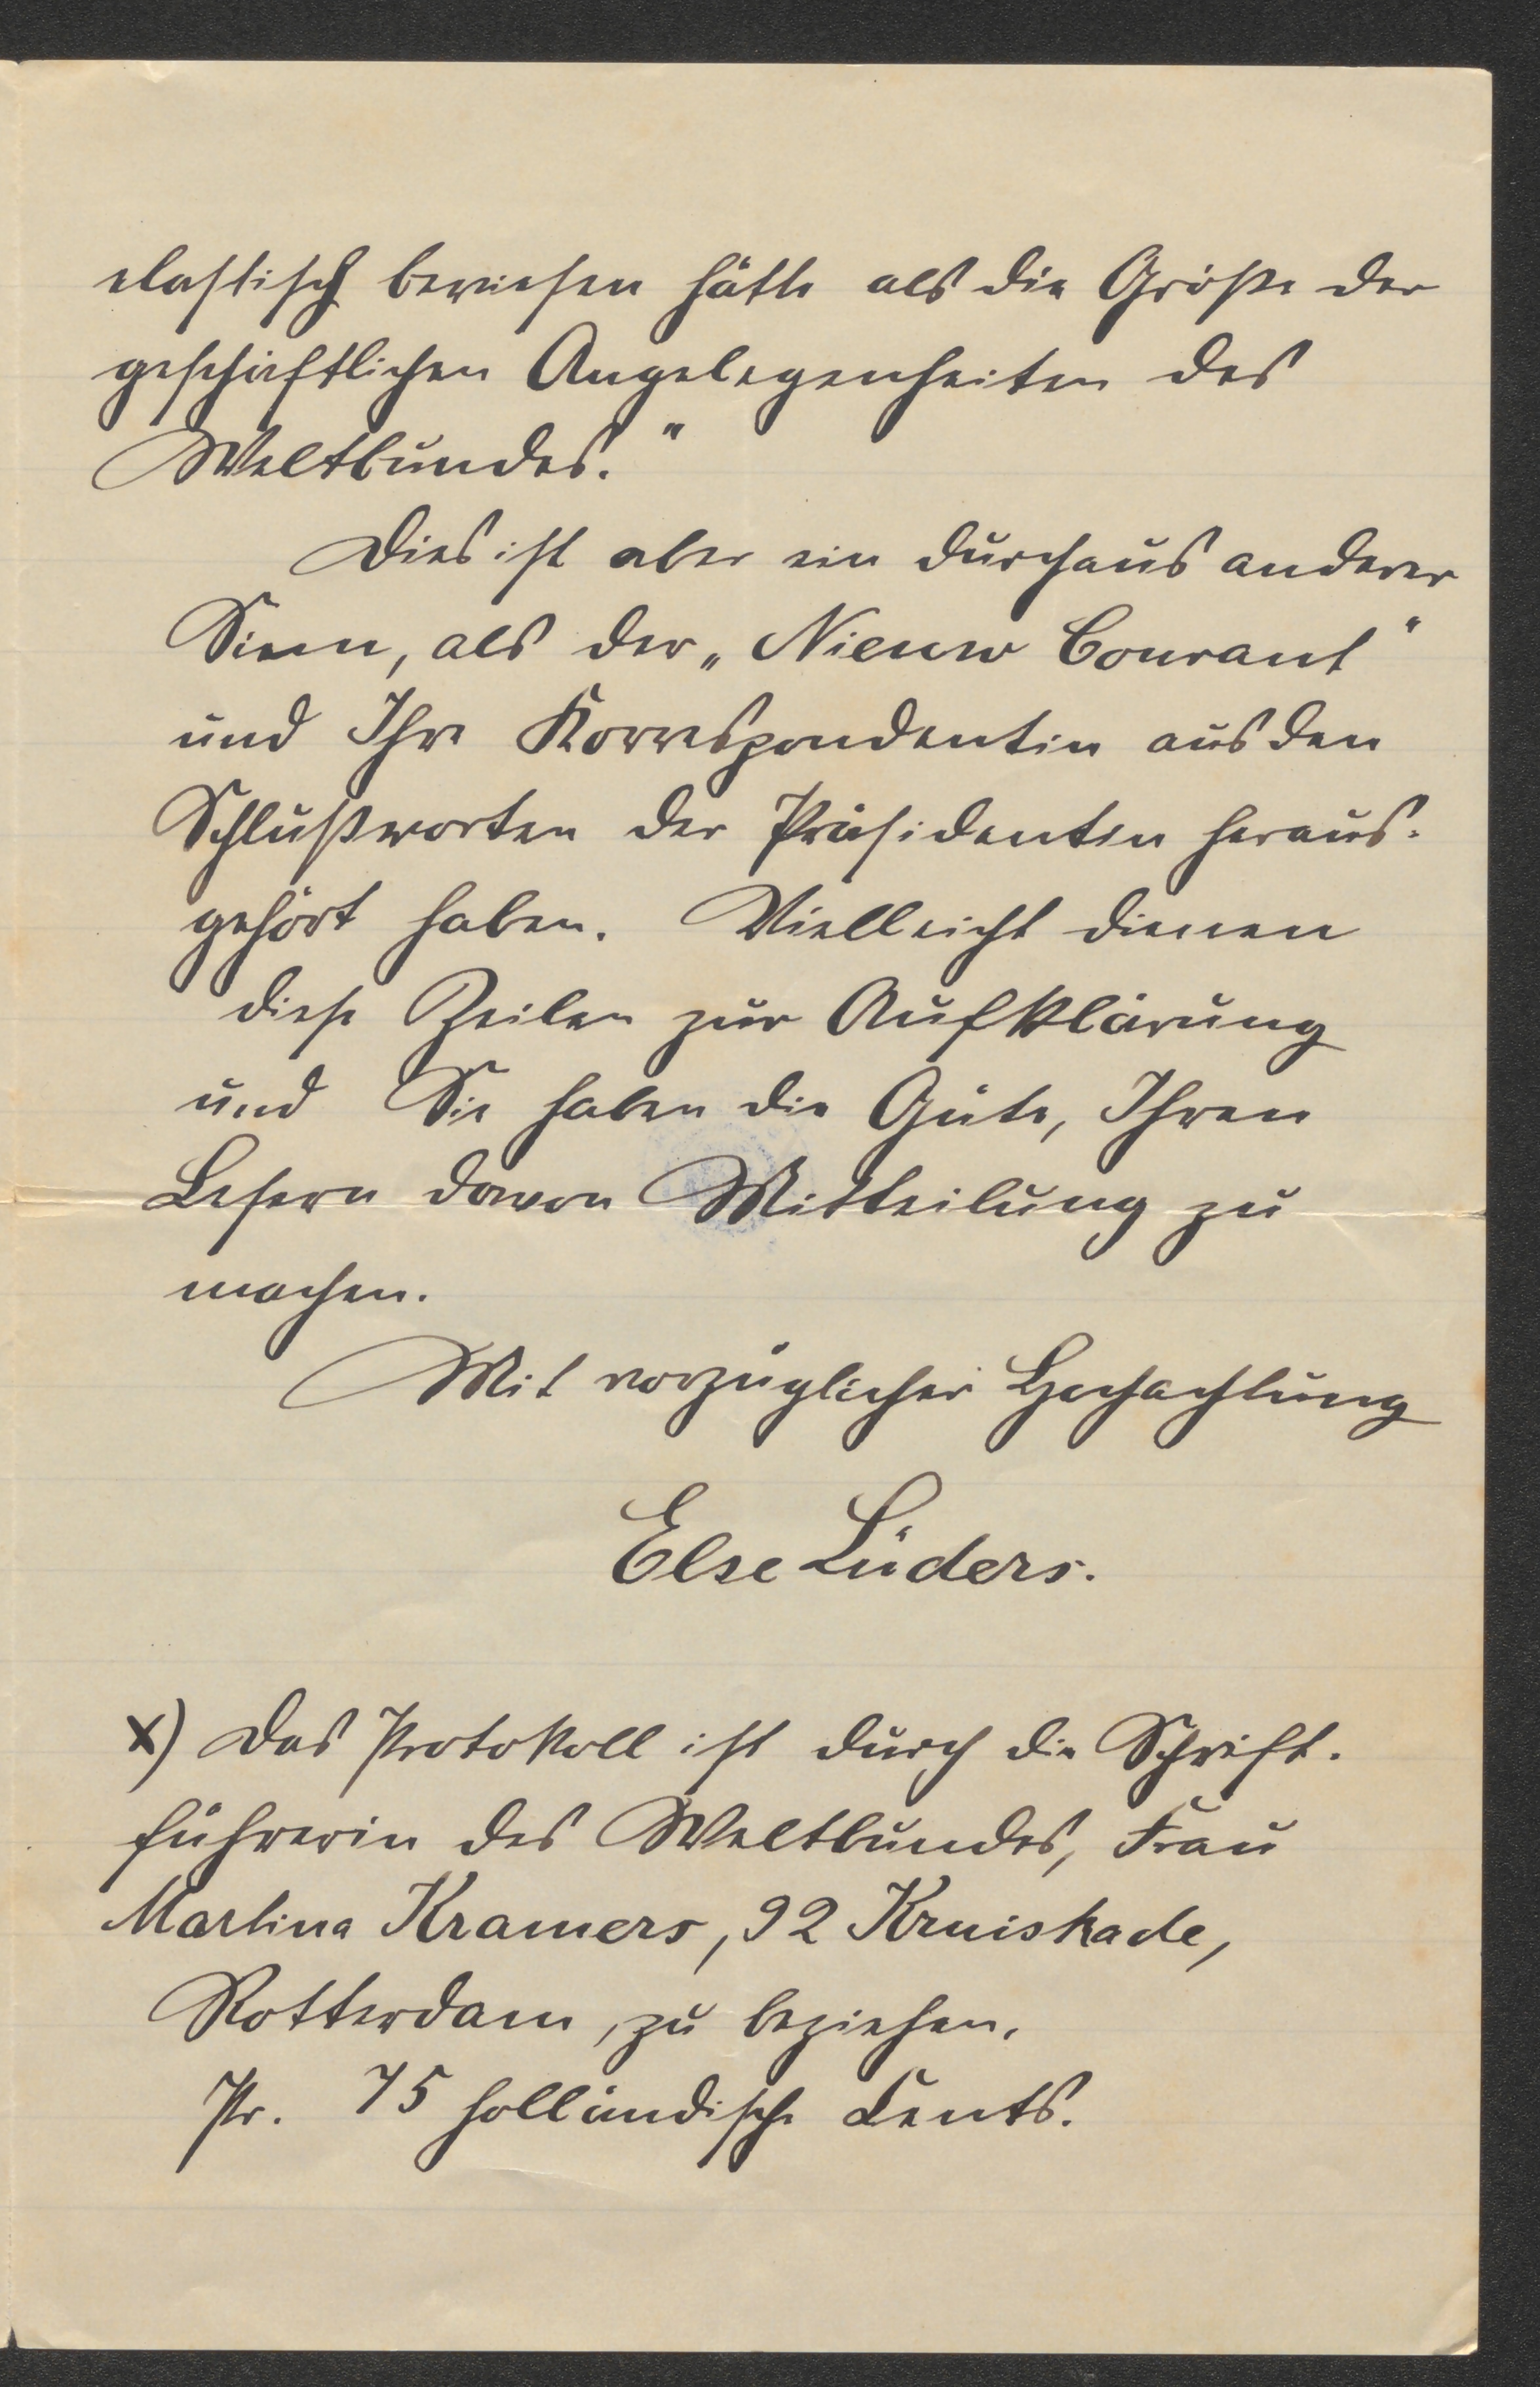 elastisch bewiesen hätte als die Größe der
geschäftlichen Angelegenheiten des
Weltbundes."
Dies ist aber ein durchaus anderer
Sinn, als der „Nieuw Courant"
und Ihre Korrespondentin aus den
Schlußworten der Präsidentin heraus-
gehört haben. Vielleicht dienen
diese Zeilen zur Aufklärung
und Sie haben die Güte, Ihren
Lesern davon Mitteilung zu
machen.
Mit vorzüglicher Hochachtung
Else Lüders.
x) Das Protokoll ist durch die Schrift-
führerin des Weltbundes, Frau
Martina Kramers, 92 Kruiskade,
Rotterdam, zu beziehen.
Pr. 75 holländische Cents.